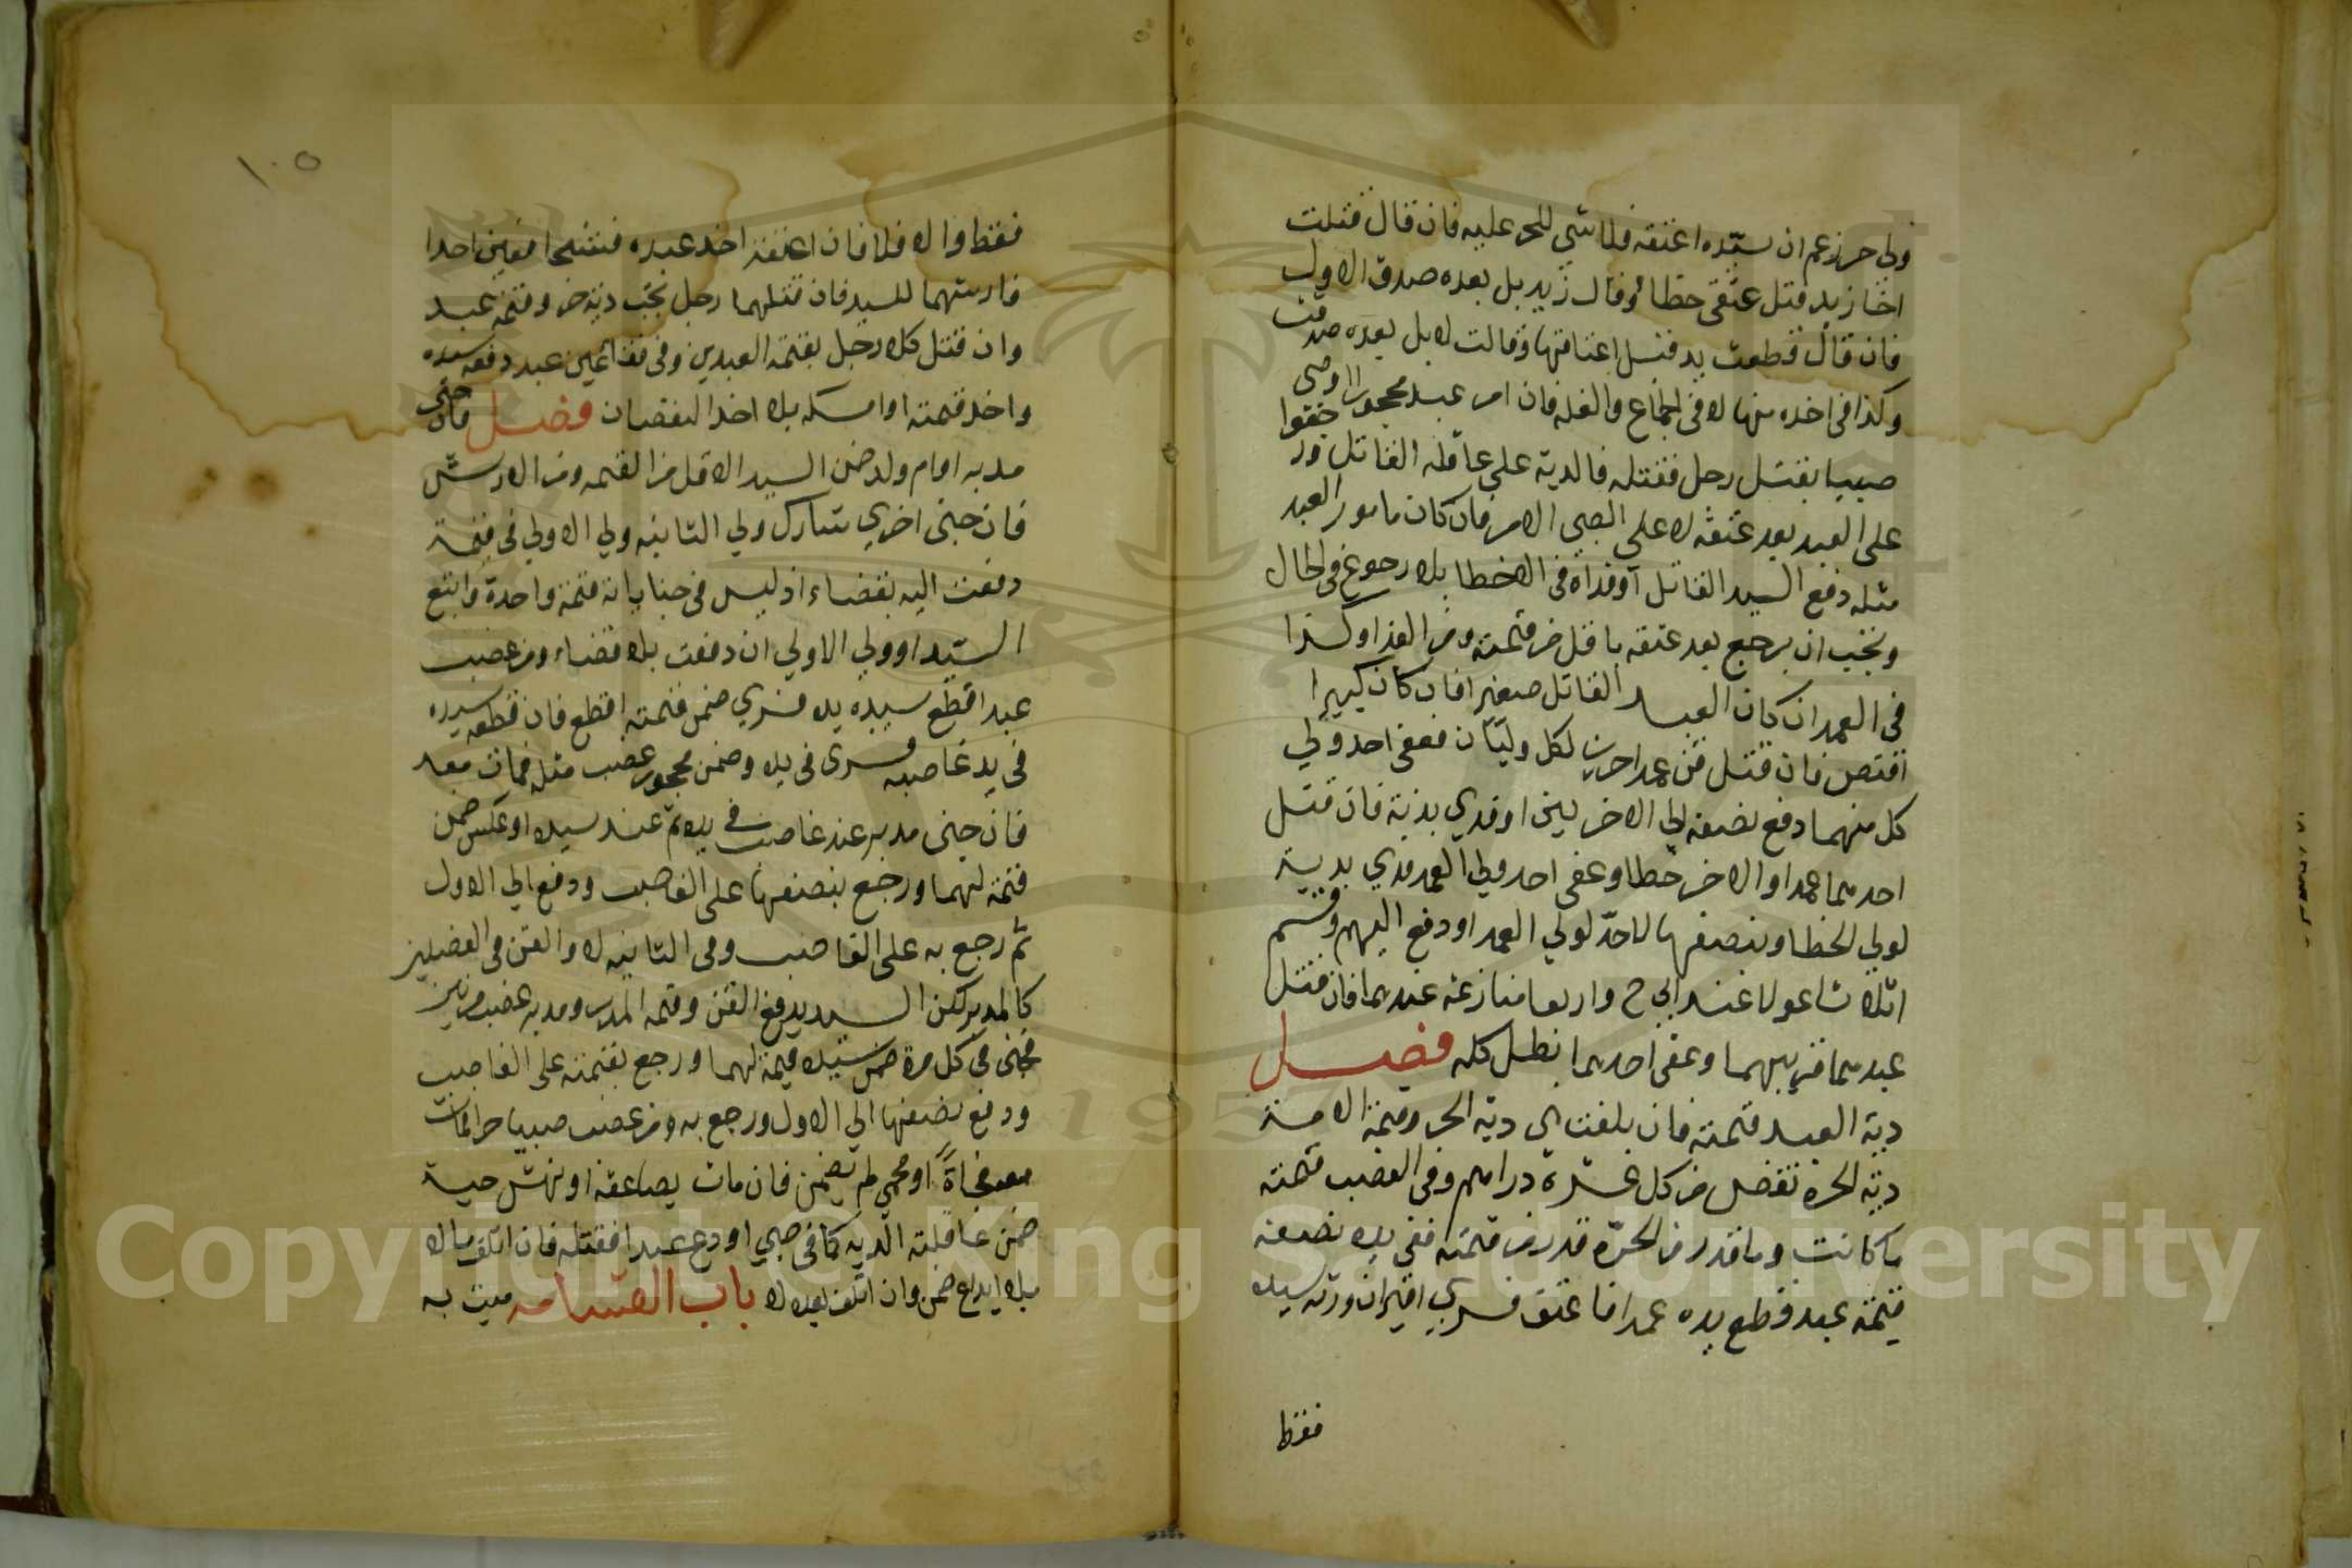 ولي حر زعم ان سيده اعتقه فلا شي للحر عليه فان قال قتلت
اخا زيد قتل عتقي خطا وقال زيد بل بعده صدق الاول
فان قال قطعت يد قبل اعتاقها وقالت لا بل بعده صدقت
وكذا في اخذه منها لا في الجماع والغله فان امر عبد محجور او صبي
صبيا بقتل رجل فقتله فالدية على عاقلة القاتل ورجعوا
على العبد بعد عتقه لا على الصبي الامر فان كان مامور العبد
مثله دفع السيد القاتل او فداه في الاخطا بلا رجوع في الحال
ويجب ان يرجع بعد عتقه باقل من قيمته ومن الفدا وكذا
في العمد ان كان العبد القاتل صغيرا فان كان كبيرا
اقتص فان قتل قن عمدا حرين لكل وليان فعفى احد ولي
كل منهما دفع نصفه الي الاخرين او فدي بدية فان قتل
احدهما عمدا والاخر خطا وعفى احد ولي العمد فدي بدية
لولي الخطا وبنصفها لاحد لولي العمد او دفع اليهم وقسم
اثلاثا عولا عند ابي ح وارباعا منازعة عندهما فان قتل
عبدهما قريبهما وعفى احدهما بطل كله فصل
دية العبد قيمته فان بلغت هي دية الحر وقيمة الامة
دية الحرة نقص من كل عشرة دراهم وفي الغصب قيمته
ما كانت وما قدر من الحرة قدر من قيمته ففي يده نصف
قيمته عبد قطع يده عمدا فاعتق فسري اقيد ان ورثه سيده
فقط
١٠٥
فقط والا فلا فان اعتق احد عبديه فشجا فعين احدا
فارشهما للسيد فان قتلهما رجل تجب دية حر وقيمة عبد
وان قتل كلا رجل بقيمة العبدين وفي فقا عيني عبد دفعه سيده
واخذ قيمته او امسكه بلا اخذ النقصان فصل فان جنى
مدبر او ام ولد ضمن السيد الاقل من القيمه ومن الارش
فان جنى اخري شارك ولي الثانيه ولي الاولي في قيمة
دفعت اليه بقضاء اذ ليس في جناياته قيمة واحدة واتبع
السيد او ولي الاولي ان دفعت بلا قضاء ومن غصب
عبدا قطع سيده يده فسري ضمن قيمته اقطع فان قطعه سيده
في يد غاصبه فسرى في يده وضمن محجور غصب مثله فمات معه
فان جنى مدبر عند غاصبه في يده ثم عند سيده او عكس ضمن
قيمة لهما ورجع بنصفها على الغاصب ودفع الي الاول
ثم رجع به على الغاصب وفي الثانيه لا والقن في الفصلين
كالمدبر لكن السيد يدفع القن وقيمه المدبر ومدبر غصب مرتين
فجنى في كل مرة ضمن سيده قيمة لهما ورجع بقيمته على الغاصب
ودفع نصفها الي الاول ورجع به ومن غصب صبيا حرا فمات
معه فجاة او بحمي لم يضمن فان مات بصاعقة او نهش حية
ضمن عاقلته الديه كما في صبي اودع عبدا فقتله فان اتلف مالا
بلا ايداع ضمن وان اتلف بعده لا باب القسامه ميت به